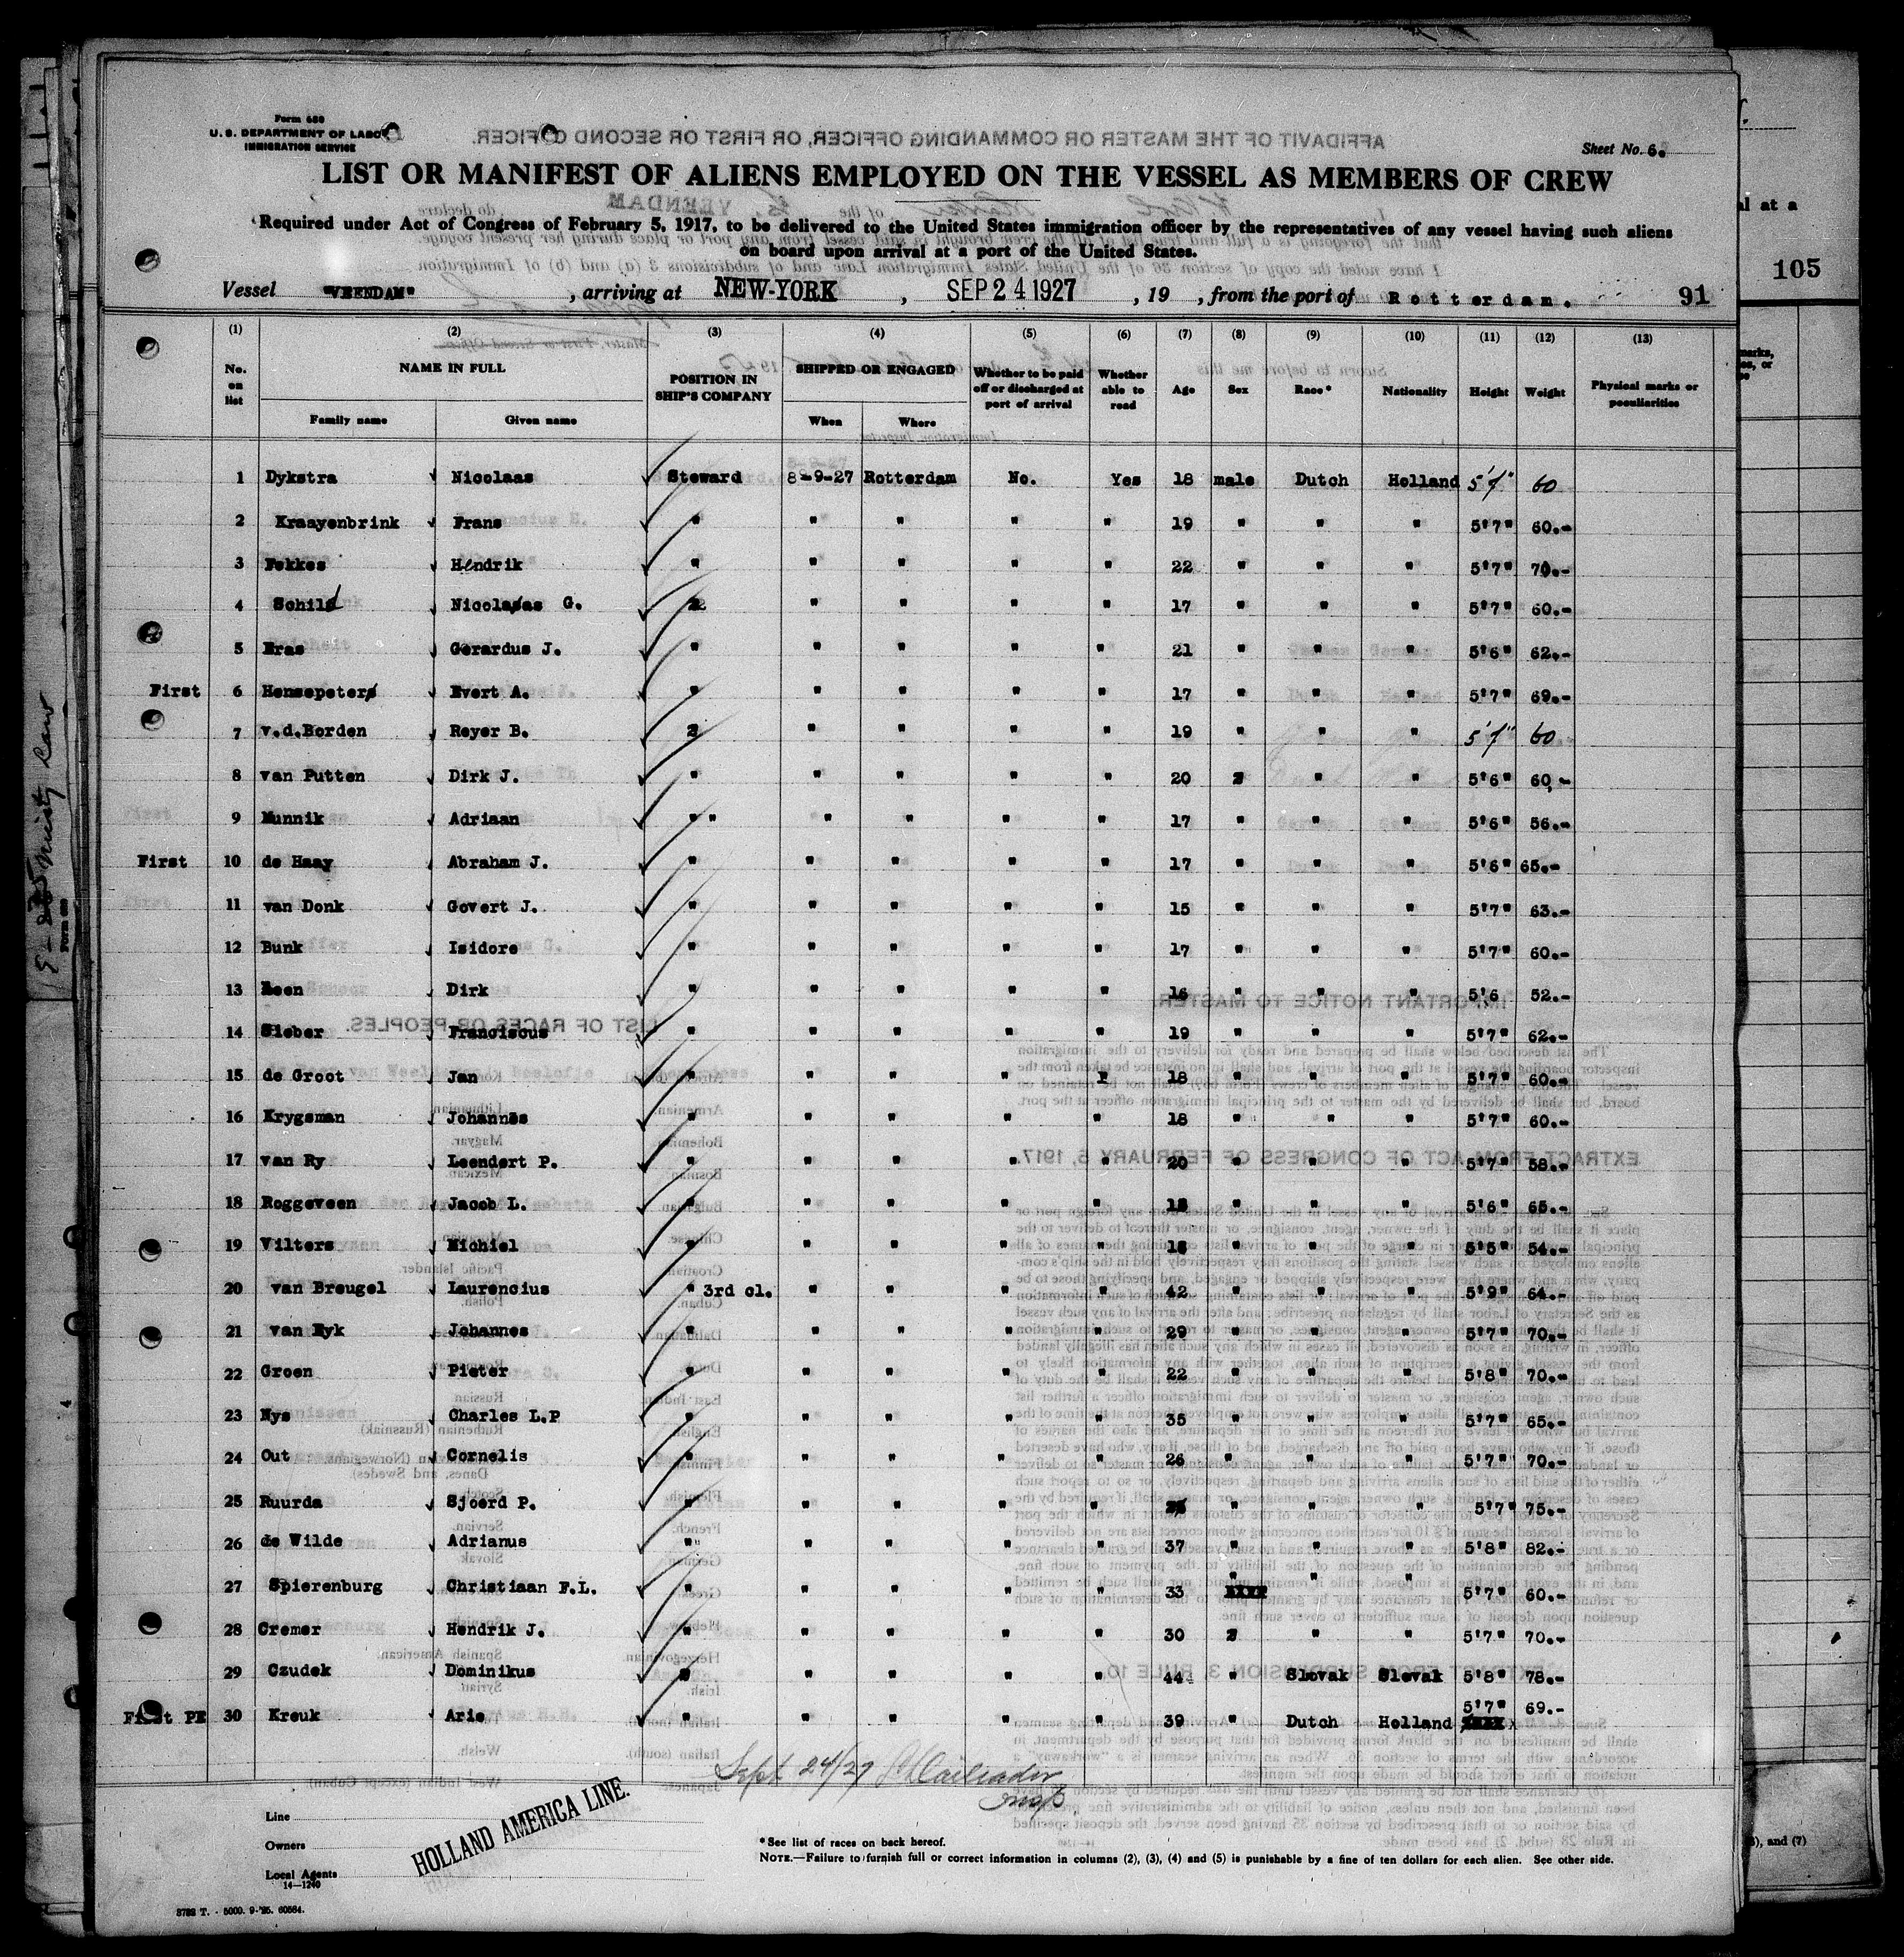 Form 680
U. S. DEPARTMENT OF LABOR
IMMIGRATION SERVICE
Sheet No. 6.
LIST OR MANIFEST OF ALIENS EMPLOYED ON THE VESSEL AS MEMBERS OF CREW
Required under Act of Congress of February 5, 1917, to be delivered to the United States immigration officer by the representatives of any vessel having such aliens
on board upon arrival at a port of the United States.
Vessel "VEENDAM" , arriving at NEW-YORK , SEP 24 1927 , 19 , from the port of Rotterdam. 91
(1) (2) (3) (4) (5) (6) (7) (8) (9) (10) (11) (12) (13)
No. on list NAME IN FULL Family name Given name POSITION IN SHIP'S COMPANY SHIPPED OR ENGAGED When Where Whether to be paid off or discharged at port of arrival Whether able to read Age Sex Race* Nationality Height Weight Physical marks or peculiarities
1 Dykstra Nicolaas Steward 8-9-27 Rotterdam No. Yes 18 male Dutch Holland 5'7" 60
2 Kraayenbrink Frans " " " " " 19 " " " 5'7" 60.-
3 Fekkes Hendrik " " " " " 22 " " " 5'7" 70.-
4 Schild Nicolaas G. " " " " 17 " " " 5'7" 60.-
5 Eras Gerardus J. " " " " " 21 " " " 5'6" 62.-
First 6 Hensepeters Evert A. " " " " " 17 " " " 5'7" 69.-
7 v.d.Borden Reyer B. " " " " 19 " " " 5'7" 60
8 van Putten Dirk J. " " " " " 20 " " 5'6" 60,-
9 Munnik Adriaan " " " " " " 17 " " " 5'6" 56.-
First 10 de Haay Abraham J. " " " " " 17 " " " 5'6" 65.-
11 van Donk Govert J. " " " " " 15 " " " 5'7" 63.-
12 Bunk Isidore " " " " " 17 " " " 5'7" 60.-
13 Reen Dirk " " " " " 16 " " " 5'6 52.-
14 Sieber Franciscus " " " " " 19 " " " 5'7" 62.-
15 de Groot Jan " " " " 18 " " " 5'7" 60.-
16 Krygsman Johannes " " " " " 18 " " " 5'7" 60.-
17 van Ry Leendert P. " " " " " 20 " " " 5'7" 58.-
18 Roggeveen Jacob L. " " " " " " " " 5'6" 65.-
19 Vilters Michiel " " " " " " " " 5'5" 54.-
20 van Breugel Laurencius " 3rd cl. " " " " 42 " " " 5'9" 64.-
21 van Eyk Johannes " " " " " 29 " " " 5'7" 70.-
22 Groen Pieter " " " " " 22 " " " 5'8" 70.-
23 Nys Charles L.P " " " " " 35 " " " 5'7" 65.-
24 Out Cornelis " " " " " 26 " " " 5'7" 70.-
25 Ruurda Sjoerd P. " " " " " " " " 5'7" 75.-
26 de Wilde Adrianus " " " " " 37 " " " 5'8" 82.-
27 Spierenburg Christiaan F.L. " " " " " 33 " " " 5'7" 60.-
28 Cremer Hendrik J. " " " " " 30 " " 5'7" 70.-
29 Czudek Dominikus " " " " " 44 " Slovak Slovak 5'8" 78.-
First PE 30 Kreuk Arie " " " " " 39 " Dutch Holland 5'7" 69.-
Sept 24/27
Insp
Line
Owners
Local Agents
HOLLAND AMERICA LINE.
14-1240
*See list of races on back hereof.
NOTE.—Failure to furnish full or correct information in columns (2), (3), (4) and (5) is punishable by a fine of ten dollars for each alien. See other side.
3782 T. - 5000. 9-'25. 60564.
al at a
105
), and (7)